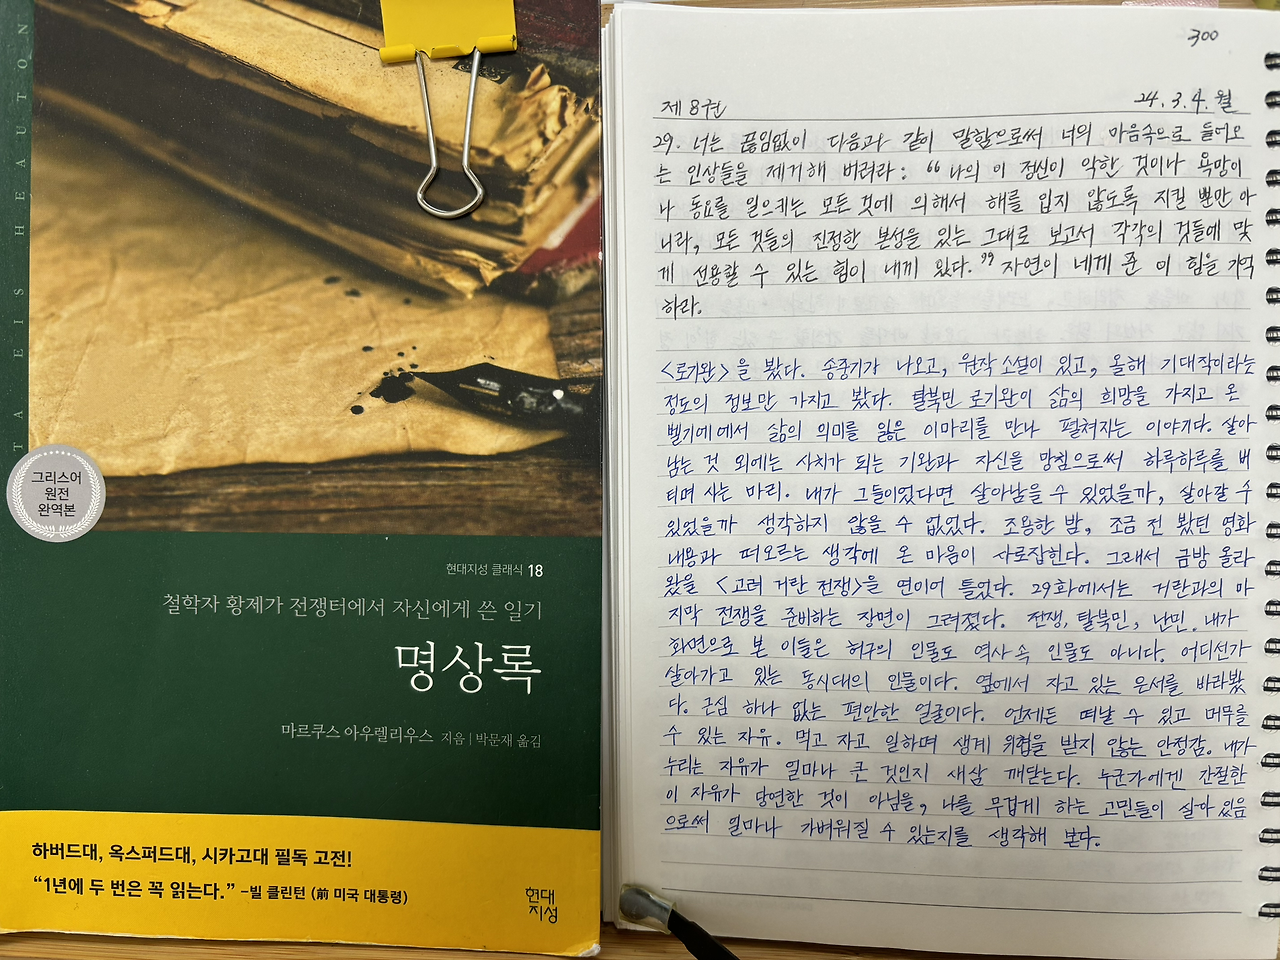 TA EIS HEAUTON
그리스어
원전
완역본
현대지성 클래식 18
철학자 황제가 전쟁터에서 자신에게 쓴 일기
명상록
마르쿠스 아우렐리우스 지음 | 박문재 옮김
하버드대, 옥스퍼드대, 시카고대 필독 고전!
“1년에 두 번은 꼭 읽는다.” –빌 클린턴 (前 미국 대통령)
현대
지성
300
제 8권 24. 3. 4. 월
29. 너는 끊임없이 다음과 같이 말함으로써 너의 마음속으로 들어오
는 인상들을 제거해 버려라 : “나의 이 정신이 악한 것이나 욕망이
나 동요를 일으키는 모든 것에 의해서 해를 입지 않도록 지킬 뿐만 아
니라, 모든 것들의 진정한 본성을 있는 그대로 보고서 각각의 것들에 맞
게 선용할 수 있는 힘이 내게 있다.” 자연이 네게 준 이 힘을 기억
하라.
<로기완>을 봤다. 송중기가 나오고, 원작 소설이 있고, 올해 기대작이라는
정도의 정보만 가지고 봤다. 탈북민 로기완이 삶의 희망을 가지고 온
벨기에에서 삶의 의미를 잃은 이마리를 만나 펼쳐지는 이야기다. 살아
남는 것 외에는 사치가 되는 기완과 자신을 망침으로써 하루하루를 버
티며 사는 마리. 내가 그들이었다면 살아남을 수 있었을까, 살아갈 수
있었을까 생각하지 않을 수 없었다. 조용한 밤, 조금 전 봤던 영화
내용과 떠오르는 생각에 온 마음이 사로잡힌다. 그래서 금방 올라
왔을 <고려 거란 전쟁>을 연이어 틀었다. 29화에서는 거란과의 마
지막 전쟁을 준비하는 장면이 그려졌다. 전쟁, 탈북민, 난민. 내가
화면으로 본 이들은 허구의 인물도 역사 속 인물도 아니다. 어디선가
살아가고 있는 동시대의 인물이다. 옆에서 자고 있는 은서를 바라봤
다. 근심 하나 없는 편안한 얼굴이다. 언제든 떠날 수 있고 머무를
수 있는 자유. 먹고 자고 일하며 생계 위협을 받지 않는 안정감. 내가
누리는 자유가 얼마나 큰 것인지 새삼 깨닫는다. 누군가에겐 간절한
이 자유가 당연한 것이 아님을, 나를 무겁게 하는 고민들이 살아있음
으로써 얼마나 가벼워질 수 있는지를 생각해 본다.